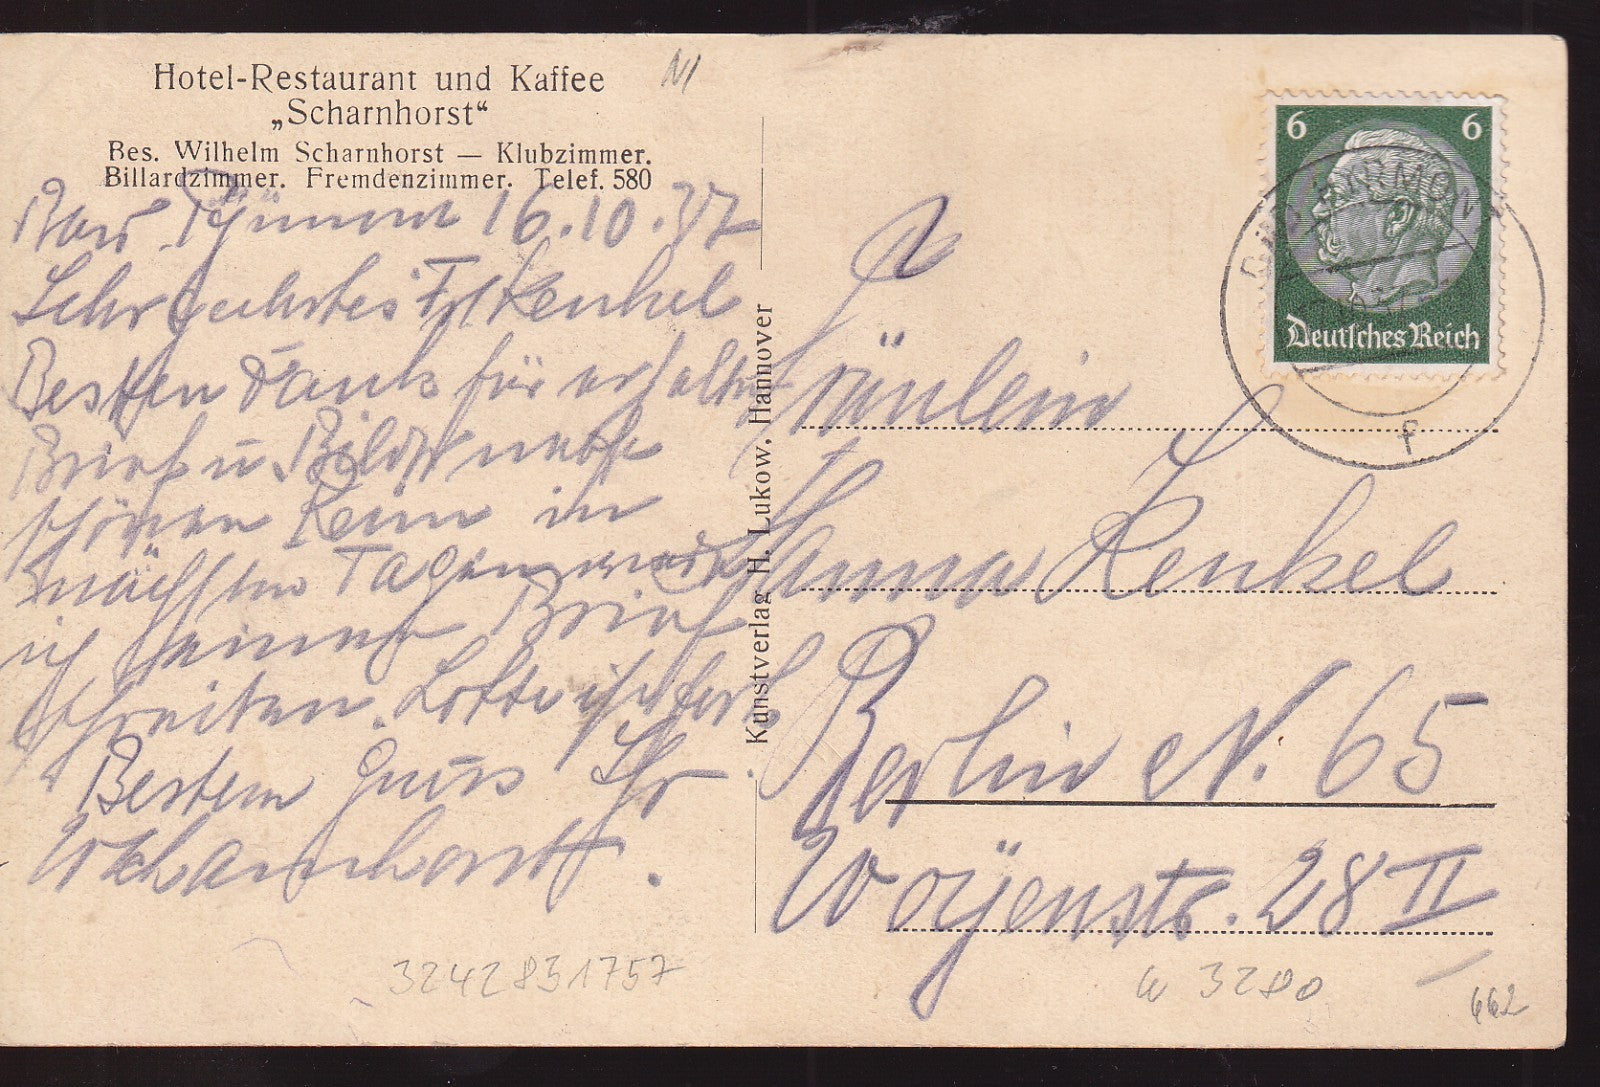 Hotel-Restaurant und Kaffee
„Scharnhorst“
Bes. Wilhelm Scharnhorst — Klubzimmer.
Billardzimmer. Fremdenzimmer. Telef. 580
NI
Bad Pyrmont 16.10.37
Sehr geehrtes Frl Renkel
Besten Dank für erhaltn
Brief u. Bilder nebst
schönen Reim in
nächsten Tagen werde
ich einen Brief
schreiben. Lotte ist fort
Besten Gruss Ihr
WScharnhorst.
Kunstverlag H. Lukow, Hannover
6 6
Deutsches Reich
BAD PYRMONT
f
Fräulein
Anna Renkel
Berlin N. 65
Woyenstr. 28 II
3242831757
w 3280
662